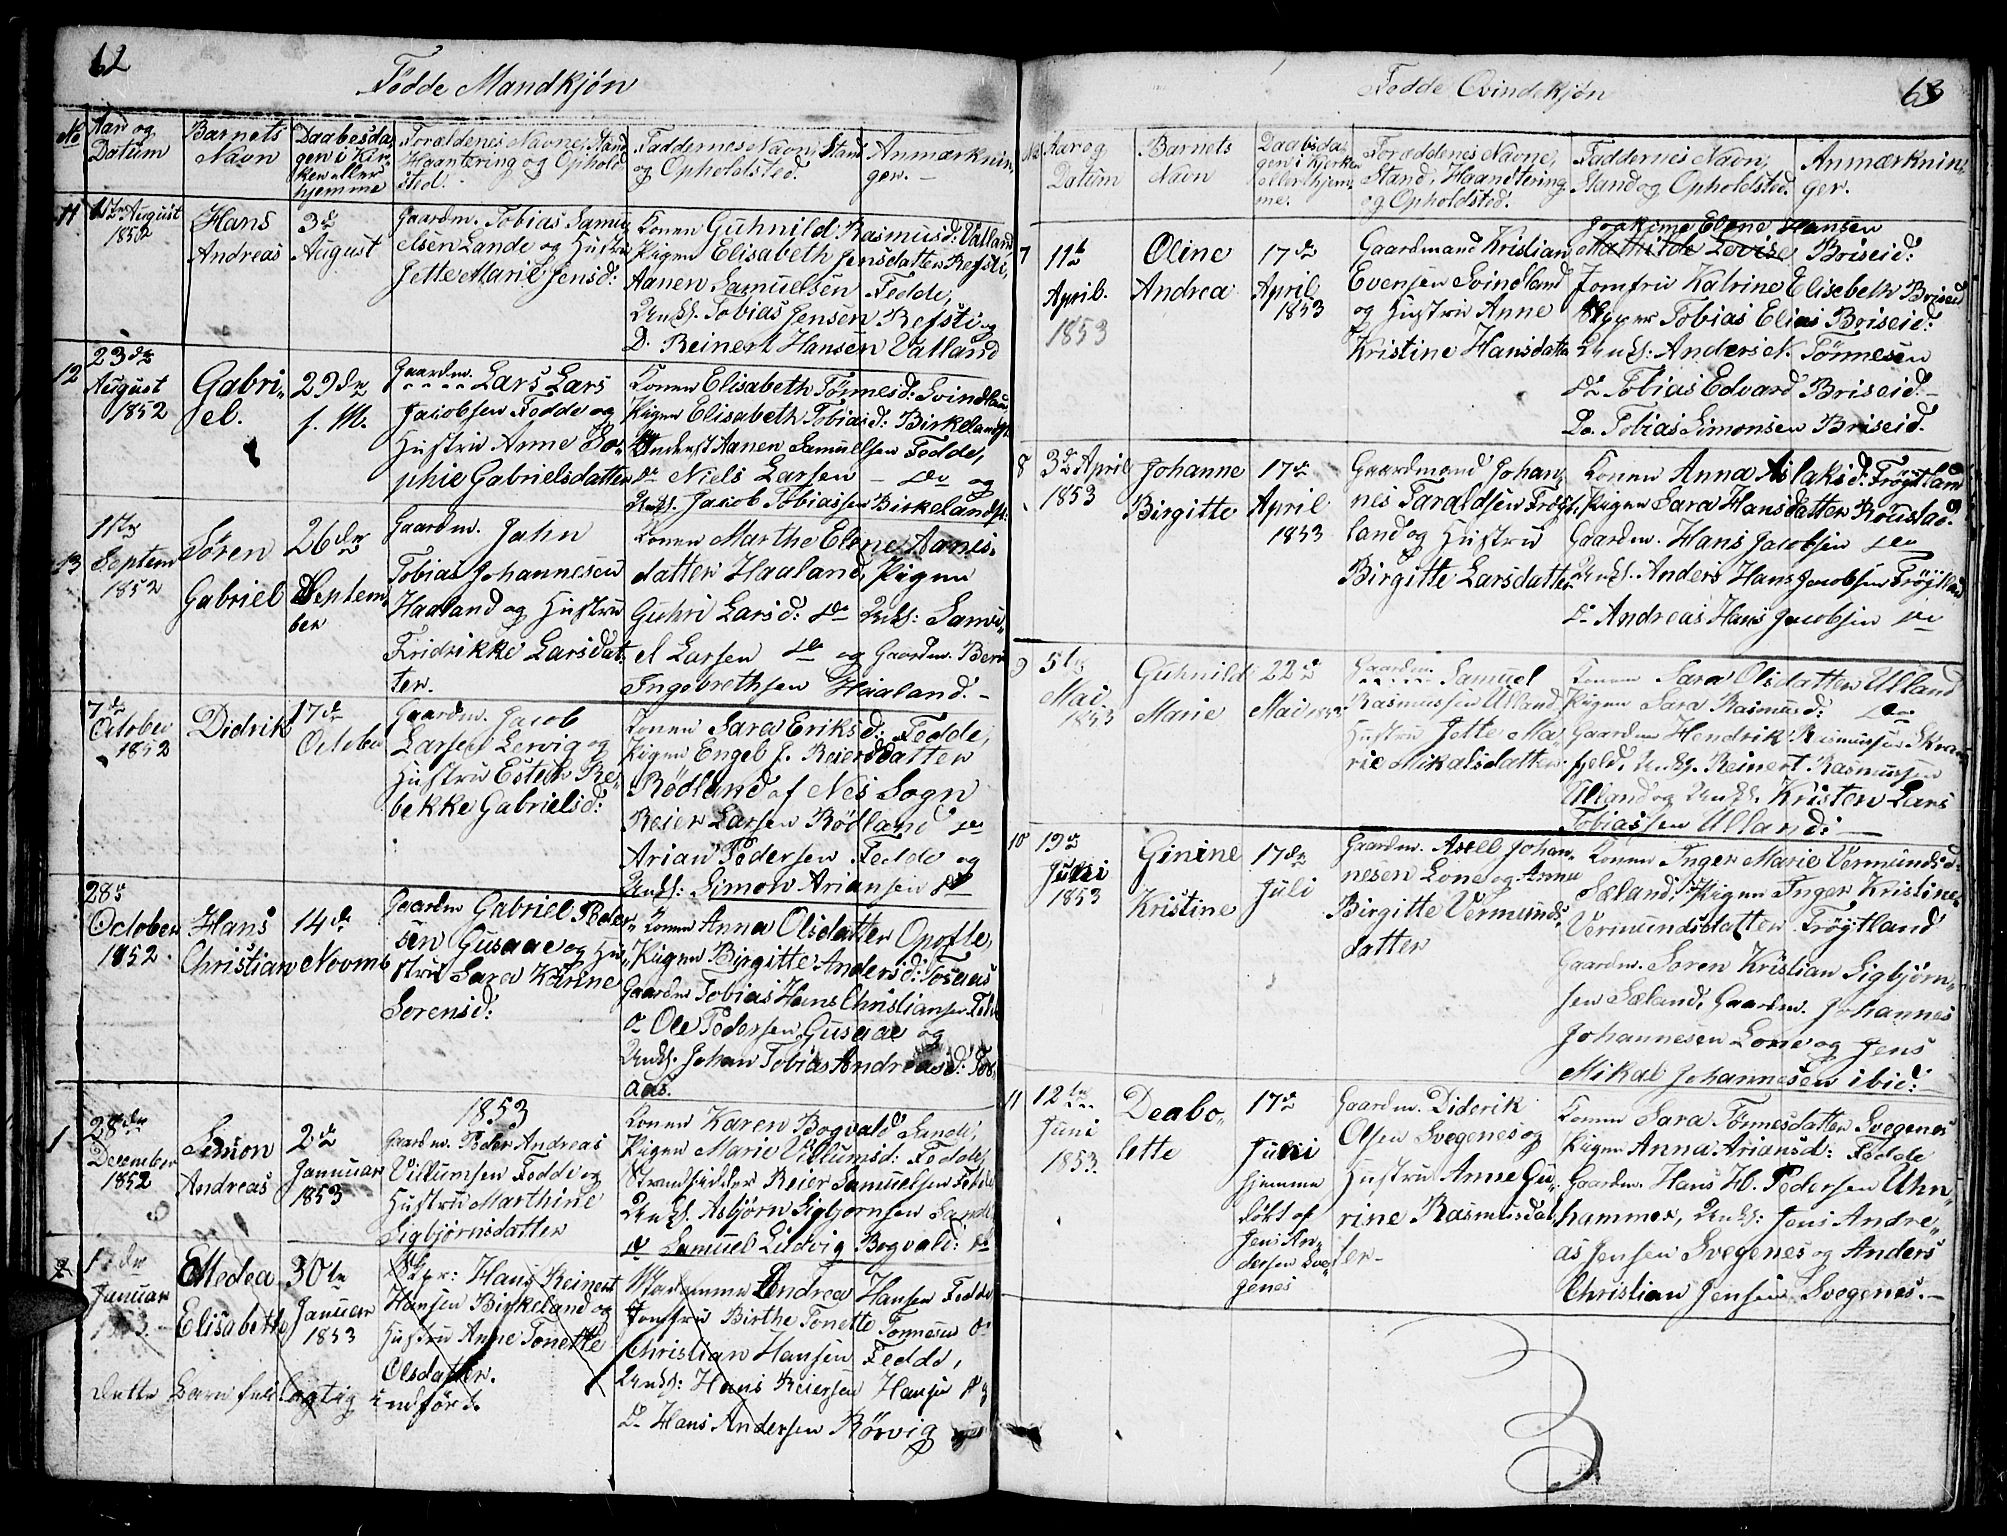 62
Födde Mandkjön
No
Aar og
Datum
Barnets
Navn
Daabesda-
gen i Kir-
ken eller
hjemme
Forældenes Navne, Stand
Haantering og Ophold-
sted.
Faddernes Navn, Stand
og Opholdsted.
Anmærknin-
ger.
11
August
1852
Hans
Andreas
3die
August
Gaardm. Tobias Samu-
elsen Lande og Hustru
Jette Marie Jensd:
Konen Guhnild Rasmusd: Vatland
Pigen Elisabeth Jensdatter Refsti,
Aanen Samuelsen Fedde,
Unks. Tobias Jensen Refsti og
D. Reinert Hansen Vatland
12
23de
August
1852
Gabri-
el.
29de
s. M.
Gaardm. Lars Lars
Jacobsen Fedde og
Hustru Anne So-
phie Gabrielsdatter
Konen Elisabeth Tönnesd: Svindland
Pigen Elisabeth Tobiasd: Birkeland
Underst Aanen Samuelsen Fedde,
do Niels Larsen do og
Unks. Jacob Tobiassen Birkeland
13
1ste
Septem
1852
Sören
Gabriel
26de
Septem-
ber
Gaardm. Jahn
Tobias Johannesen
Haaland og Hustru
Fridrikke Larsdat-
ter.
Konen Marthe Elene Aanes-
datter Haaland, Pigen
Guhri Larsd: do Unks: Samu-
el Larsen do og Gaardm. Bern
Ingebrethsen Haaland.
7de
October
1852
Didrik
17de
October
Gaardm. Jacob
Larsen Lervig og
Hustru Ester Re-
bekke Gabrielsd:
Konen Sara Eriksd: Fedde,
Pigen Engel J. Reiersdatter
Rödland af Nes Sogn
Reier Larsen Rödland do
Arian Pedersen Fedde og
Unks: Simon Ariansen do
28de
October
1852.
Hans
Christian
14de
Novmb
Gaardm Gabriel Peder-
sen Gusaae og Hu-
stru Sara Karine
Sorensd:
Konen Anna Olsdatter Opofte,
Pigen Birgitte Andersd: Tosaas
Gaardm Tobias Hans Christiansen Fedde
do Ole Pedersen Gusaae og
Unks. Johan Tobias Andreasd: Tos-
aas.
1853
1
28de
December
1852
Simon
Andreas
2de
Januuar
1853
Gaardm. Peder Andreas
Villumsen Fedde og
Hustru Marthine
Sigbjörnsdatter
Konen Karen Bogvald Sande,
Pigen Marie Villumsd: Fedde,
Strandsidder Reier Samuelsen Fedde
Unks. Asbjörn Sigbjornsen Sande
do Samuel Ludvig Bogvald: do
2
Januar
1853.
Medea
Elisabeth
30te
Januar
1853
Skpr: Hans Reinert
Hansen Birkeland og
Hustru Anne Tonette
Olsdatter.
Madamme Andrea Hansen Fedde
Jomfru Birthe Tonette Tönnesen do
Christian Hansen Fedde,
Unks: Hans Reiersen Hansen do
Do Hans Andersen Rörvig
Dette Barn feilagtig indfört.
63
Fødde Qvindekjön
No
Aar og
Datum
Barnets
Navn
Daabsda-
gen i Kjerken
eller hjem-
me.
Forældenes Navne,
Stand, Haandtering
og Opholdsted.
Faddernes Navn,
Stand og Opholdsted.
Anmærknin-
ger.
7
11te
April.
1853
Oline
Andrea
17de
April
1853
Gaardmand Kristian
Evensen Svindland
og Hustru Anne
Kristine Hansdatter
Joakime Elene Hansen
Mathilde Lovise Briseid:
Jomfru Katrine Elisebeth Briseid
Skpper Tobias Elias Briseid:
Unks: Anders N. Tönnesen
do Tobias Edvard Briseid.
Do. Tobias Simonsen Briseid.
8
3de April
1853
Johanne
Birgitte
17de
April
1853
Gaardmand Johan-
nes Taraldsen Fröyt-
land og Hustru
Birgitte Larsdatter
Konen Anna Aslaksd: Fröytland
Pigen Sara Hansdatter Roustad
Gaardm. Hans Jacobsen do
Unks. Anders Hans Jacobsen Fröytland
do Andreas Hans Jacobsen do
9
5te
Mai
1853
Guhnild
Marie
22de
Mai 1853
Gaardm. Samuel
Rasmussen Ulland
Hustru Jette Ma-
rie Mikalsdatter
Konen Sara Olsdatter Ulland
Pigen Sara Rasmusd: do
Gaardm Hendrik Rasmussen Skran-
fjeld, Unks. Reinert Rasmussen
Ulland og Unks. Kristen Lars
Tobiassen Ulland:
10
19de
Juni
1853
Ginine
Kristine
17de
Juli
Gaardm. Axel Johan-
nesen Lone og Anne
Birgitte Vermunds-
datter
Konen Inger Marie Vermundsd:
Sæland: Pigen Inger Kristine
Vermundsdatter Fröytland
Gaardm. Soren Kristian Sigbjörn-
sen Sæland, Gaardm. Johannes
Johannesen Lone og Jens
Mikal Johannesen ibid:
11
12te
Juni
1853.
Deabo-
lette
17de
Juli
hjemme
dökt af
Jens An-
dersen Sve-
genes
Gaardm. Diderik
Olsen Svegenes og
Hustru Anne Gu-
rine Rasmusdat-
ter
Konen Sara Tönnesdatter Svegenes
Pigen Anna Ariansd: Fedde
Gaardm. Hans H. Pedersen Uhn-
hammer, Unks: Jens Andre-
as Jensen Svegenes og Anders
Christian Jensen Svegenes.